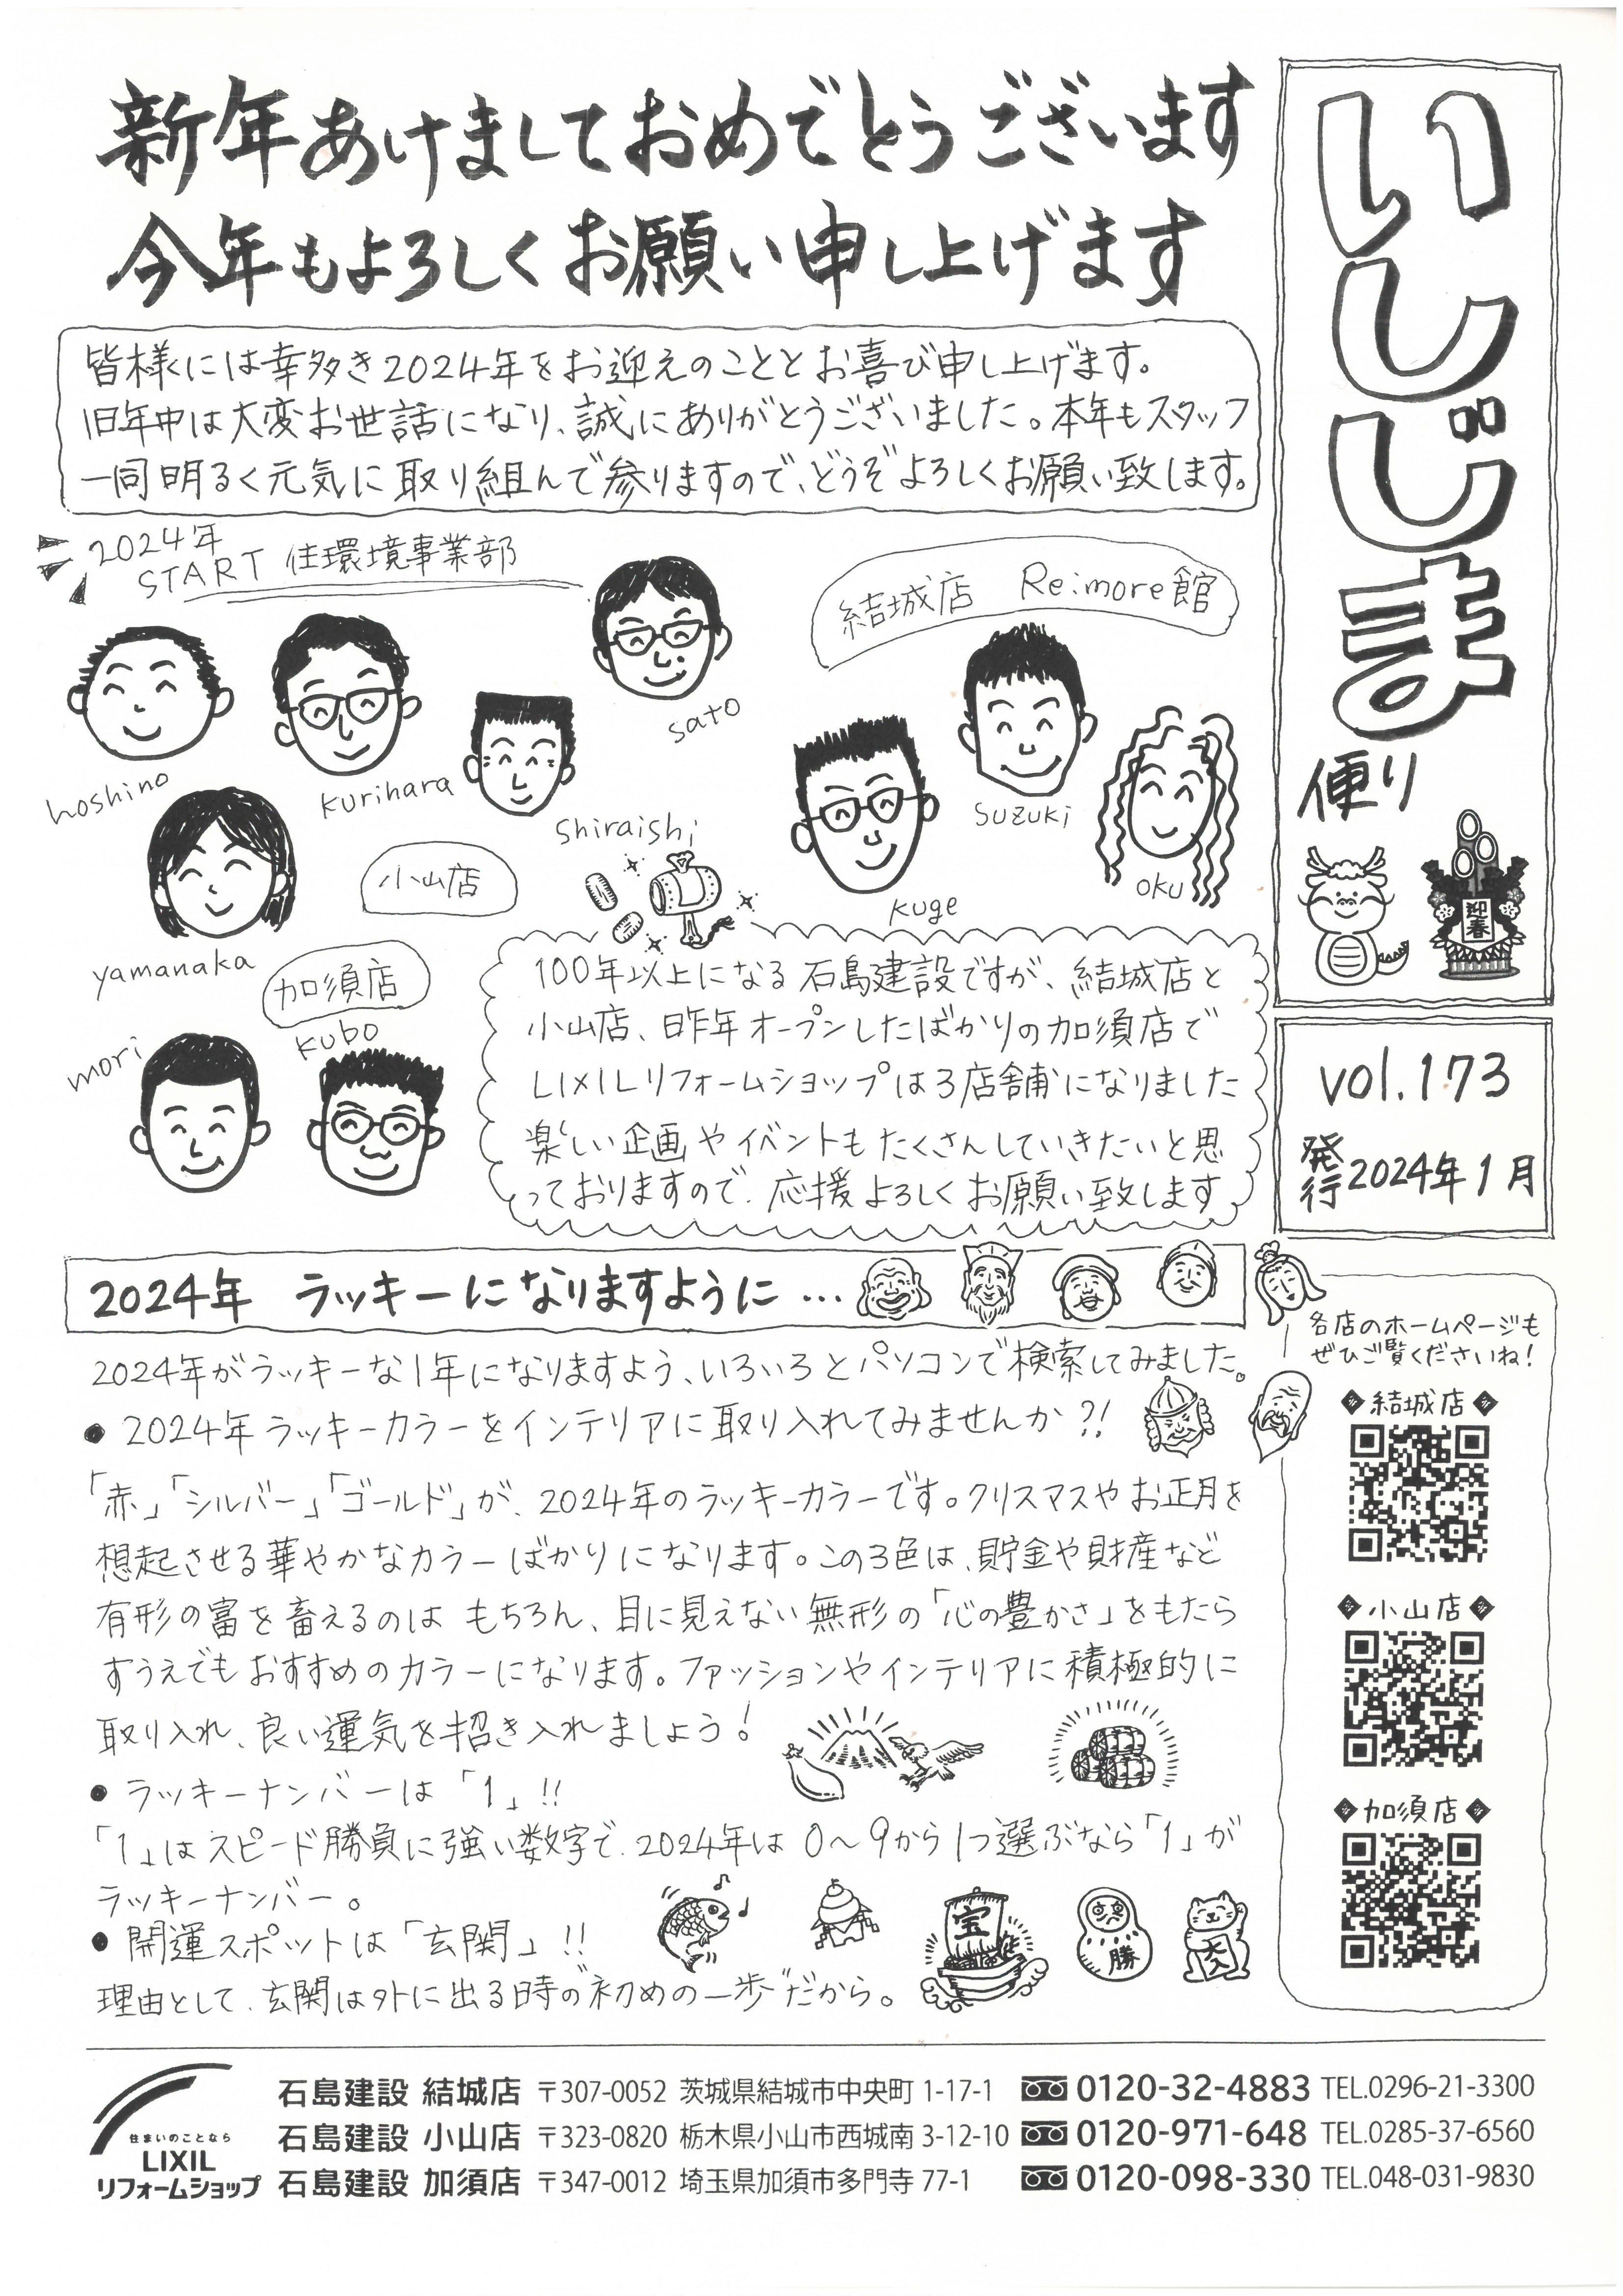 新年あけましておめでとうございます
今年もよろしくお願い申し上げます
いしじま
便り
迎春
vol.173
発行2024年1月
皆様には幸多き2024年をお迎えのこととお喜び申し上げます。
旧年中は大変お世話になり、誠にありがとうございました。本年もスタッフ
一同明るく元気に取り組んで参りますので、どうぞよろしくお願い致します。
2024年
START 住環境事業部
結城店 Re:more館
hoshino
kurihara
shiraishi
sato
kuge
suzuki
oku
yamanaka
小山店
加須店
mori
kubo
100年以上になる石島建設ですが、結城店と
小山店、昨年オープンしたばかりの加須店で
LIXILリフォームショップは3店舗になりました
楽しい企画やイベントもたくさんしていきたいと思
っておりますので、応援よろしくお願い致します
2024年 ラッキーになりますように…
2024年がラッキーな1年になりますよう、いろいろとパソコンで検索してみました。
● 2024年ラッキーカラーをインテリアに取り入れてみませんか?!
「赤」「シルバー」「ゴールド」が、2024年のラッキーカラーです。クリスマスやお正月を
想起させる華やかなカラーばかりになります。この3色は、貯金や財産など
有形の富を蓄えるのはもちろん、目に見えない無形の「心の豊かさ」をもたら
すうえでもおすすめのカラーになります。ファッションやインテリアに積極的に
取り入れ、良い運気を招き入れましょう!
● ラッキーナンバーは「1」!!
「1」はスピード勝負に強い数字で、2024年は0〜9から1つ選ぶなら「1」が
ラッキーナンバー。
● 開運スポットは「玄関」!!
理由として、玄関は外に出る時の"初めの一歩"だから。
宝
勝
各店のホームページも
ぜひご覧くださいね!
◆結城店◆
◆小山店◆
◆加須店◆
住まいのことなら
LIXIL
リフォームショップ
石島建設 結城店 〒307-0052 茨城県結城市中央町 1-17-1 0120-32-4883 TEL.0296-21-3300
石島建設 小山店 〒323-0820 栃木県小山市西城南 3-12-10 0120-971-648 TEL.0285-37-6560
石島建設 加須店 〒347-0012 埼玉県加須市多門寺 77-1 0120-098-330 TEL.048-031-9830